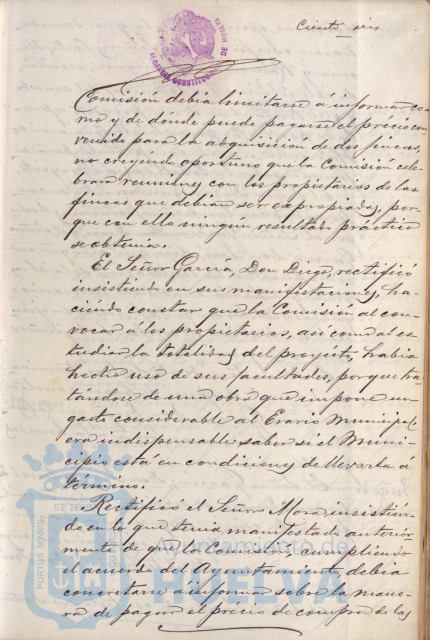 Ciento seis
ALCALDIA CONSTITUCIONAL DE HUELVA
Comisión debia limitarse á informar co-
mo y de dónde puede pagarse el précio con-
venido para la adquisicion de dos fincas,
no creyendo oportuno que la Comisión cele-
brara reuniones con los propietarios de las
fincas que debian ser expropiadas, por-
que con ello ningún resultado práctico
se obtenia.
El Señor García, Don Diego, rectificó
insistiendo en sus manifestaciones, ha-
ciéndo constar que la Comisión al con-
vocar á los propietarios, así como al es-
tudiar la totalidad del proyecto, habia
hecho uso de sus facultades, porque tra-
tándose de una obra que impone un
gasto considerable al Erario Municipal
era indispensable saber si el Muni-
cipio está en condiciones de llevarla á
término.
Rectificó el Señor Mora insistién-
do en lo que tenia manifestado anterior-
mente de que la Comisión cumpliendo
el acuerdo del Ayuntamiento, debia
concretarse á informar sobre la mane-
ra de pagar el precio de compra de las
PORTUS MARIS
ET TE
Ayuntamiento de
HUELVA